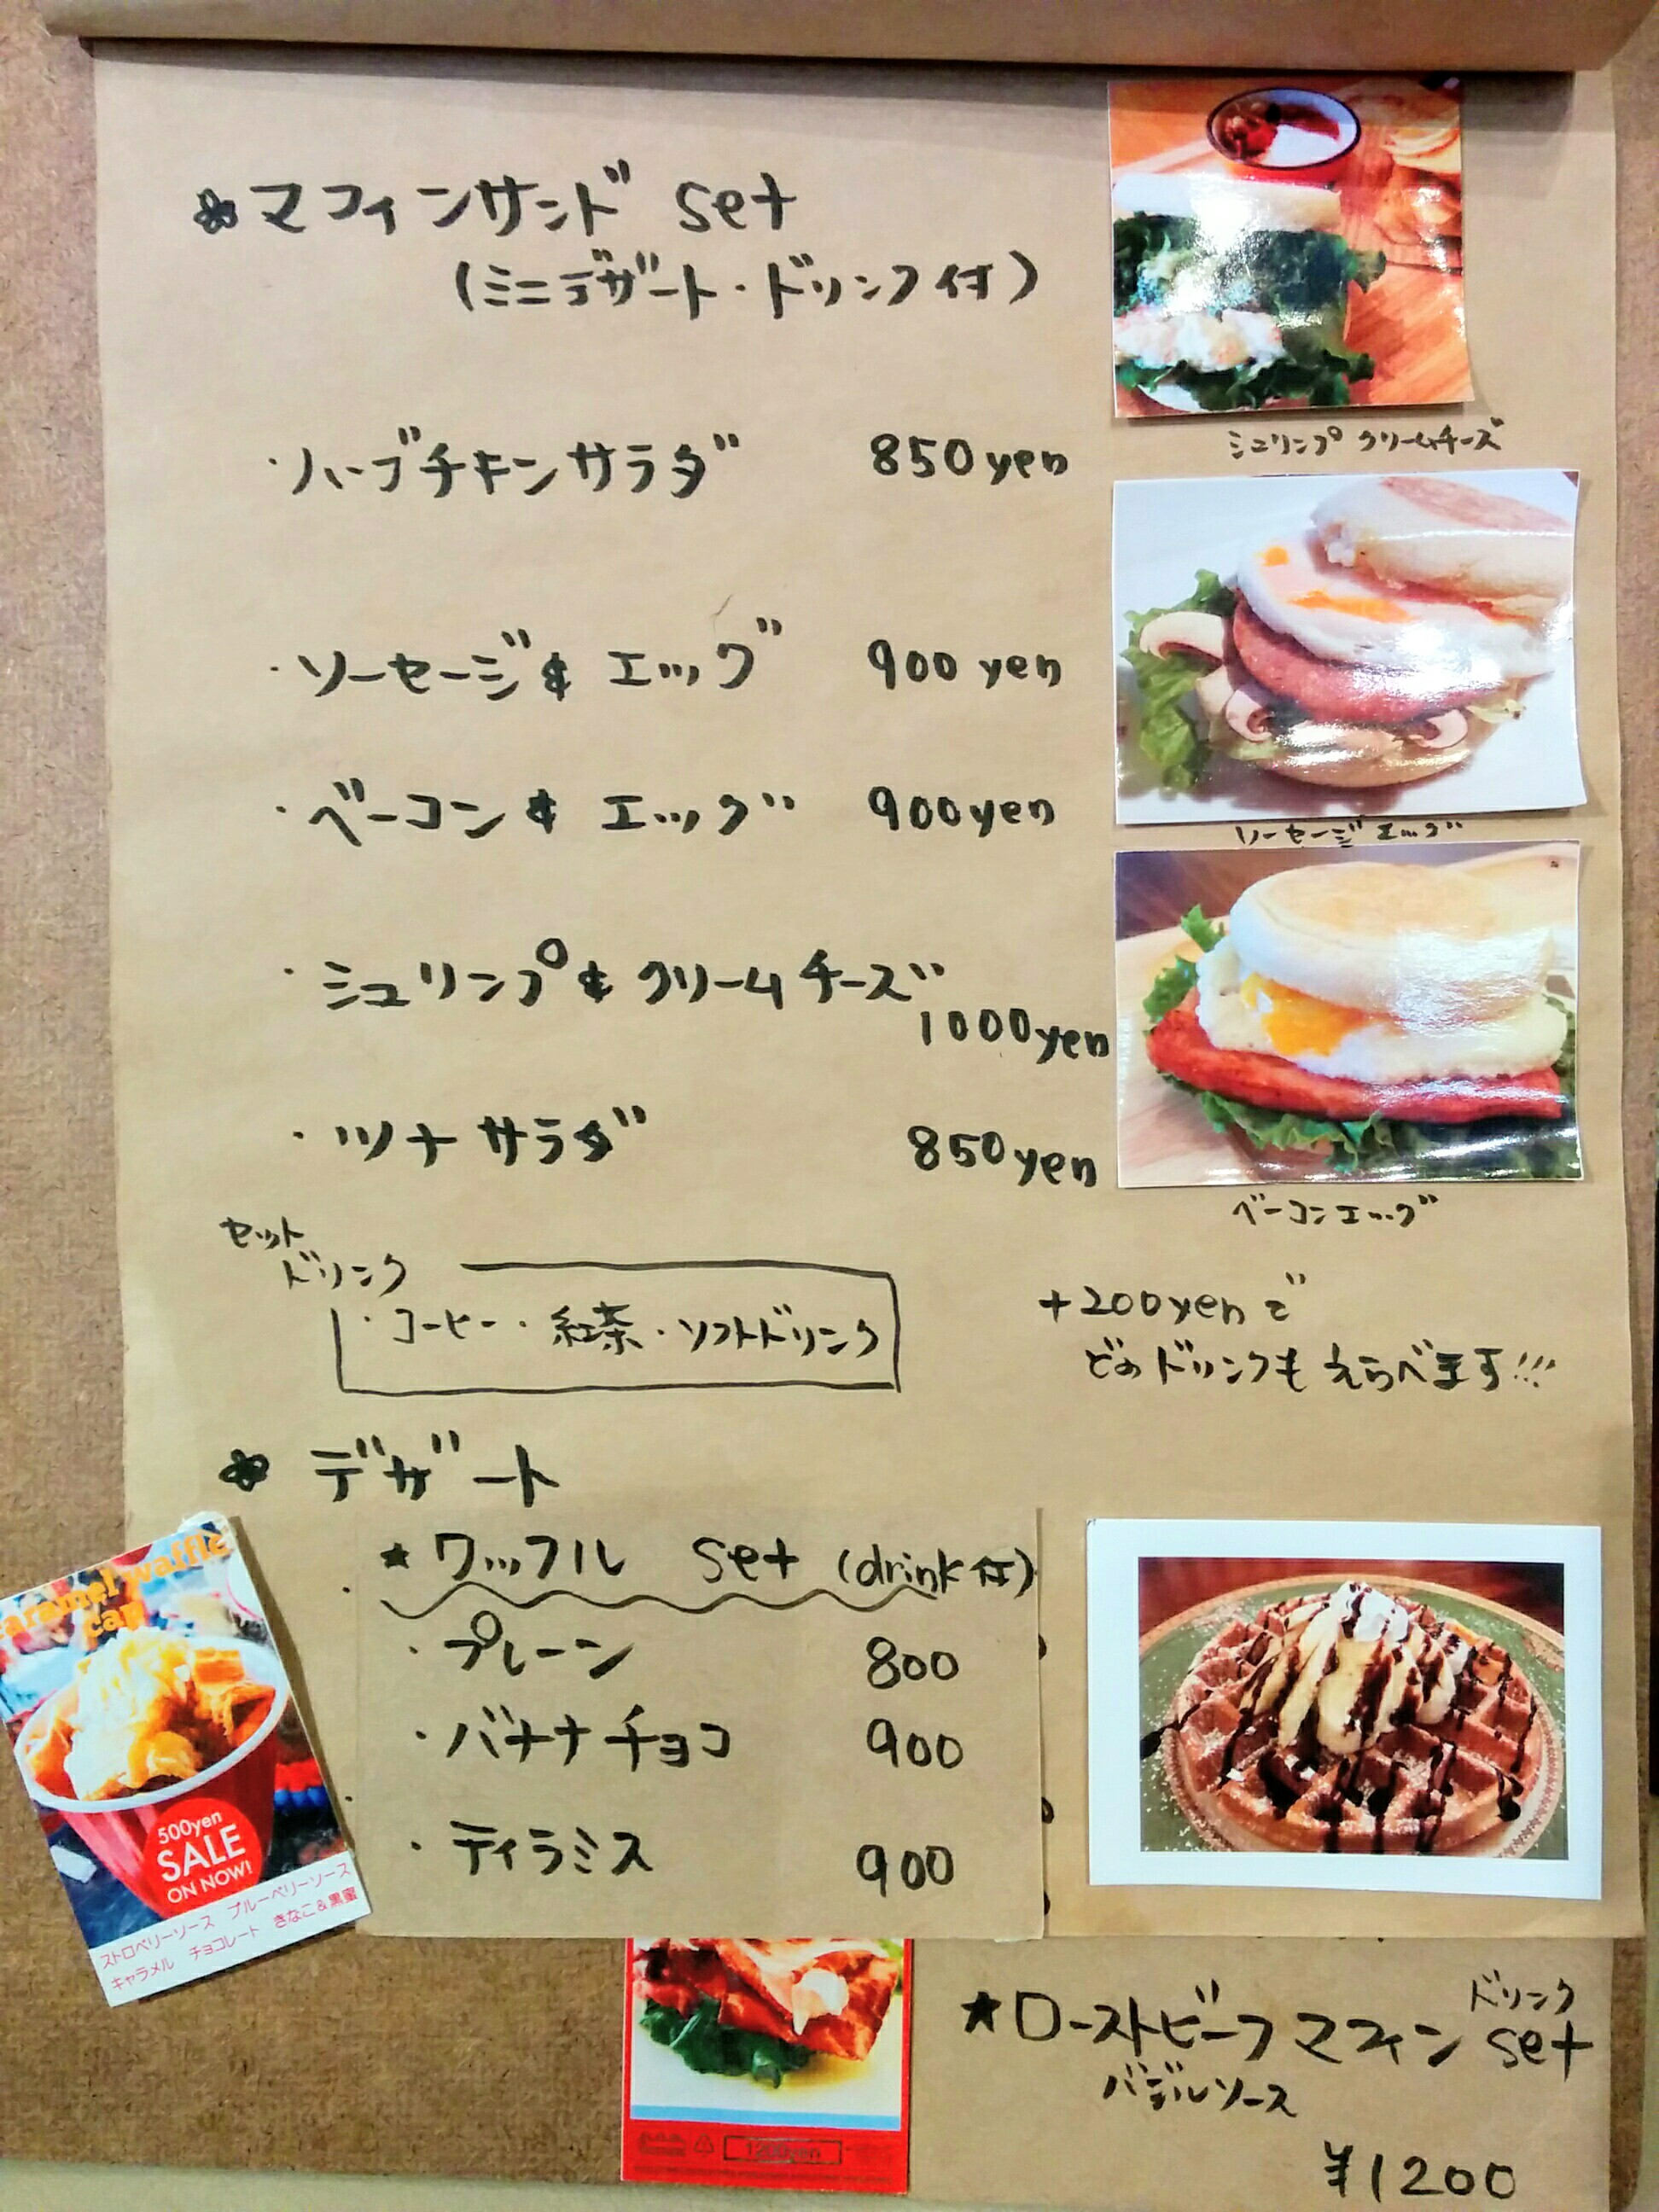 マフィンサンド set
(ミニデザート・ドリンク付)
・ハーブチキンサラダ 850yen
・ソーセージ& エッグ 900 yen
・ベーコン & エッグ 900yen
・ミュリンプ& クリームチーズ
1000yen
・ツナサラダ 850yen
セット
ドリンク
・コーヒー・紅茶・ソフトドリンク
+200yenで
どのドリンクも えらべます!!!
デザート
★ワッフル set (drink付)
・プレーン 800
・バナナチョコ 900
・ティラミス 900
ミュリンプ クリームチーズ
ソーセージ エッグ
ベーコンエッグ
caramel waffle
cap
500yen
SALE
ON NOW!
ストロベリーソース ブルーベリーソース
キャラメル チョコレート きなこ&黒蜜
1200yen
★ローストビーフ マフィン ドリンク set
バジルソース
¥1200